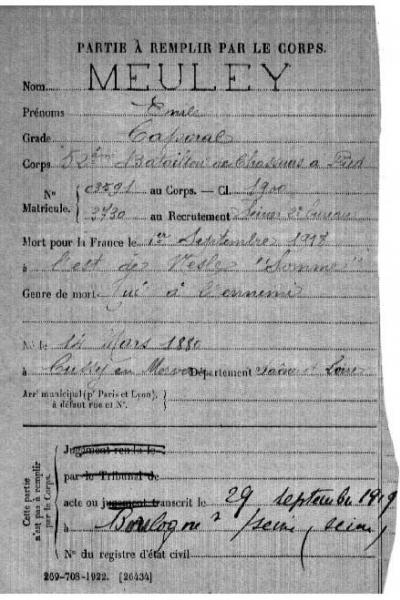 PARTIE À REMPLIR PAR LE CORPS.
Nom MEULEY
Prénoms Emile
Grade Caporal
Corps 52ème Bataillon de Chasseurs à Pied
N° Matricule. { 03591 au Corps. — Cl. 1900
3730 au Recrutement Seine 2e bureau
Mort pour la France le 1er Septembre 1918
à l'est de Nesle "Somme"
Genre de mort Tué à l'ennemi
Né le 14 Mars 1880
à Cussy en Morvan Département Saône et Loire
Arrt municipal (pr Paris et Lyon),
à défaut rue et N°.
Cette partie n'est pas à remplir par le Corps.
Jugement rendu le
par le Tribunal de
acte ou jugement transcrit le 29 septembre 1919
à Boulogne s/ seine (seine)
N° du registre d'état civil
269-708-1922. [26434]